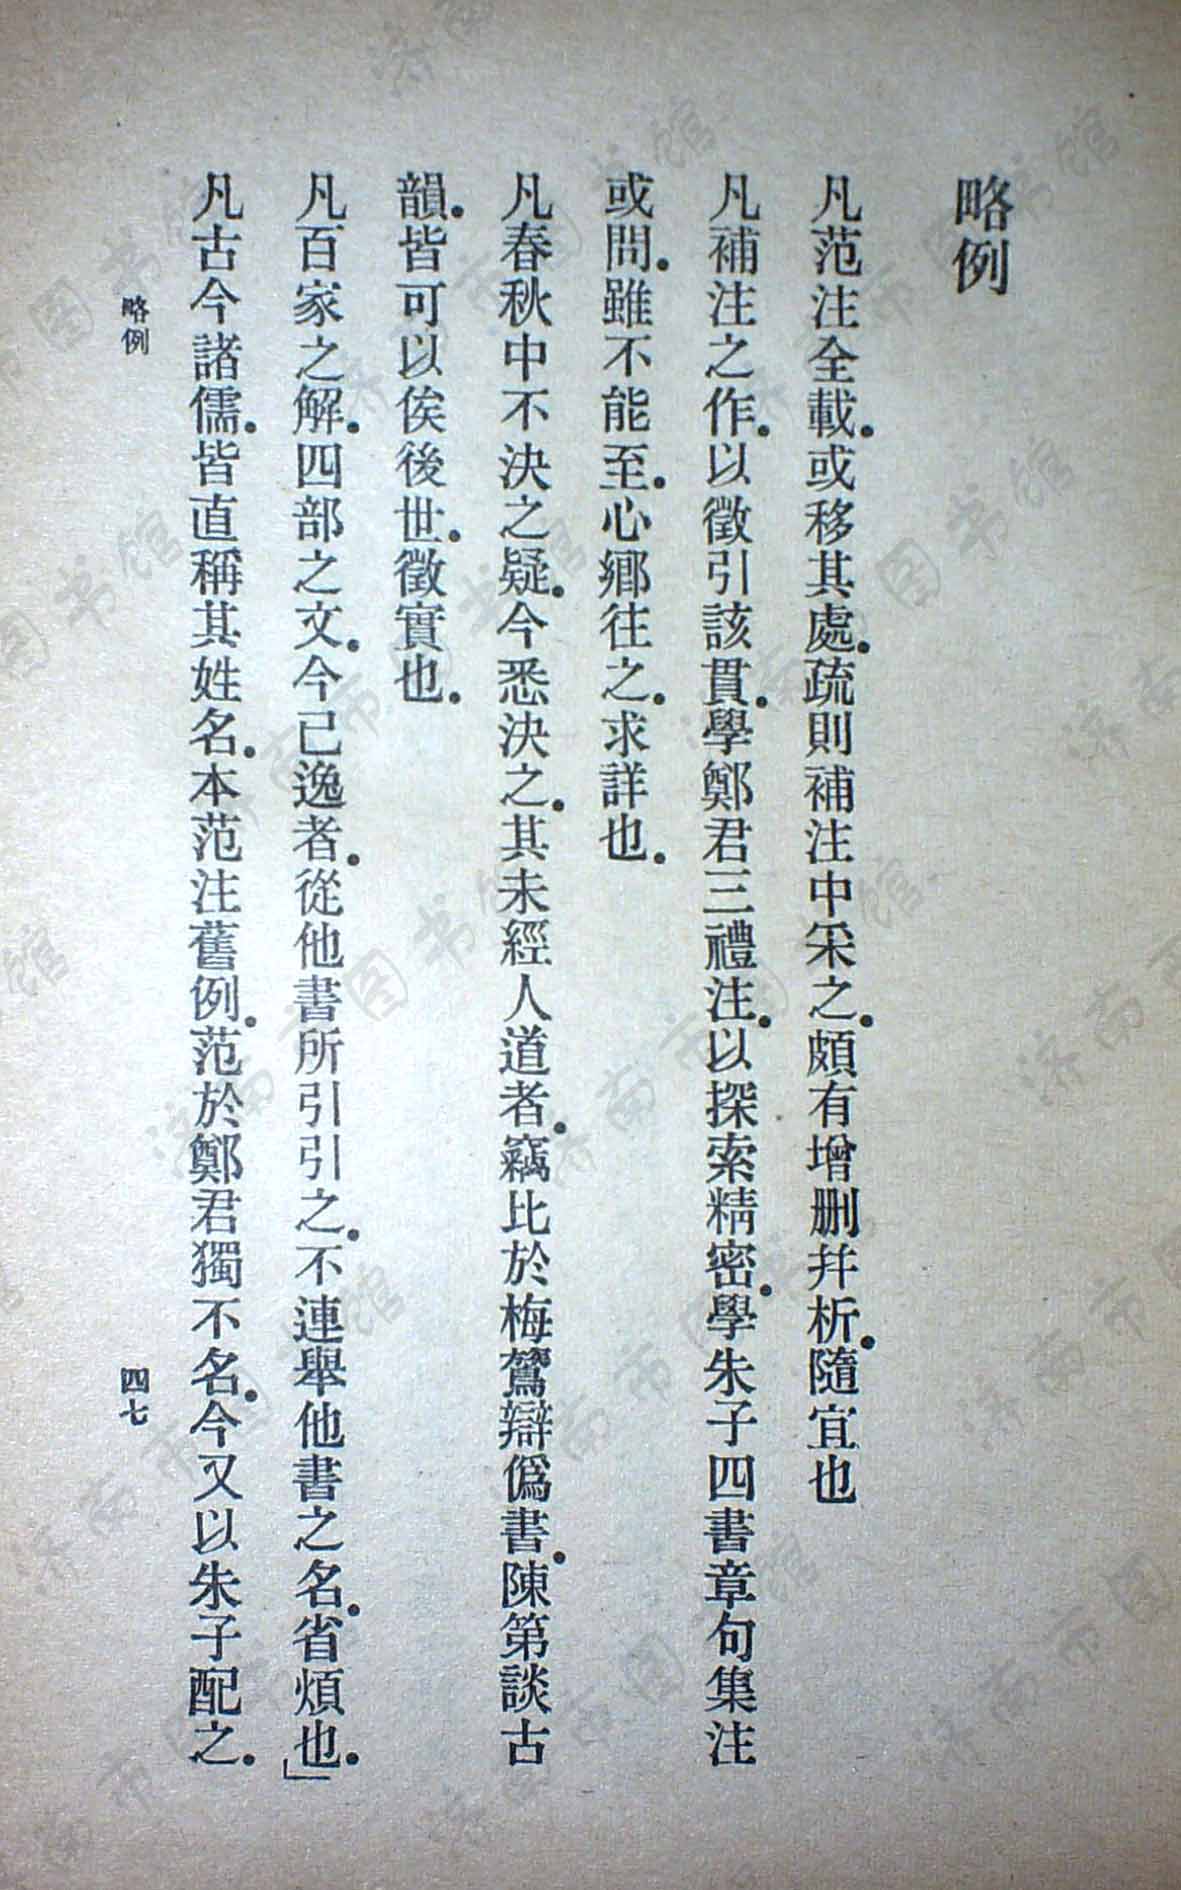 略例
凡范注全載.或移其處.疏則補注中采之.頗有增删幷析.隨宜也
凡補注之作.以徵引該貫.學鄭君三禮注.以探索精密.學朱子四書章句集注
或問.雖不能至.心鄉往之.求詳也.
凡春秋中不決之疑.今悉決之.其未經人道者.竊比於梅鷟辯僞書.陳第談古
韻.皆可以俟後世.徵實也.
凡百家之解.四部之文.今已逸者.從他書所引引之.不連舉他書之名.省煩也.」
凡古今諸儒.皆直稱其姓名.本范注舊例.范於鄭君獨不名.今又以朱子配之.
略例
四七
济南市图书馆